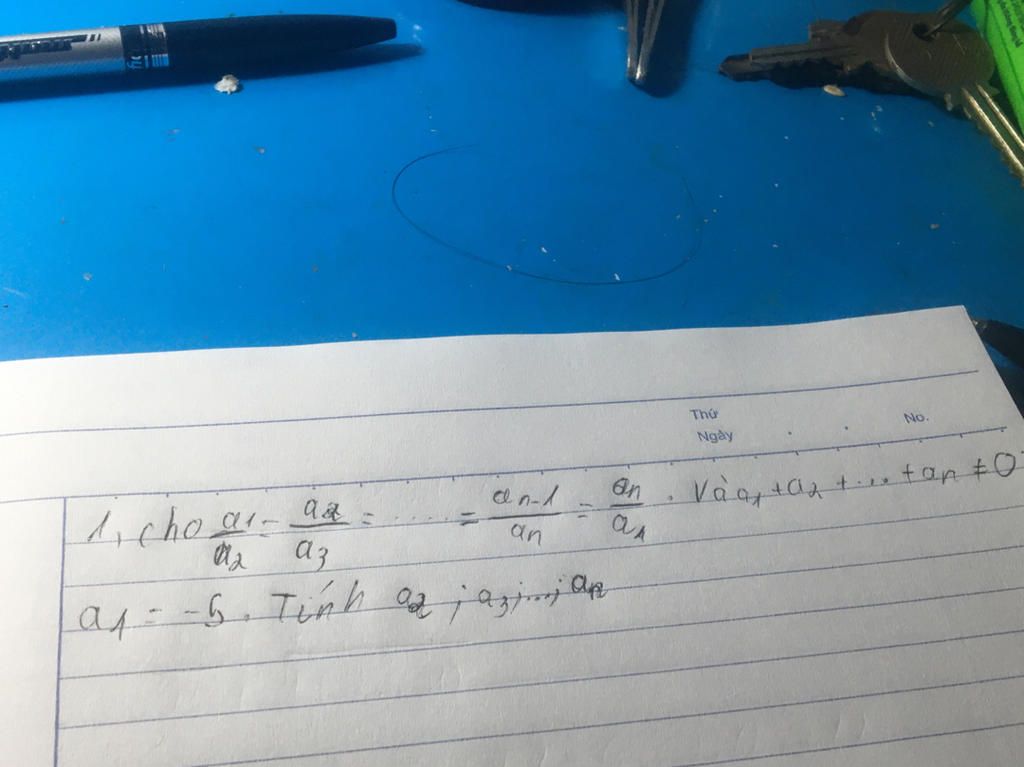 Thứ
Ngày . . No.
1, cho a1/a2 = a2/a3 = ..... = an-1/an = an/a1 . Và a1 + a2 + ... + an ≠ 0
a1 = -5. Tính a2 ; a3 ; ... ; an